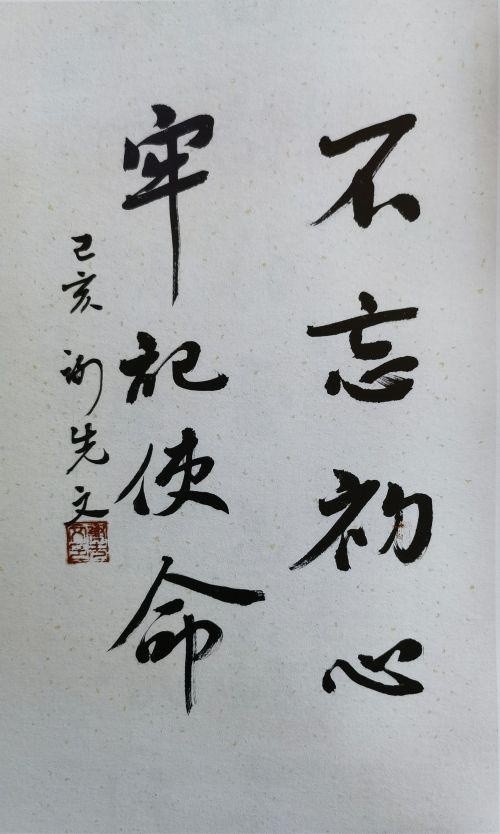 不忘初心
牢记使命
己亥 谢先文